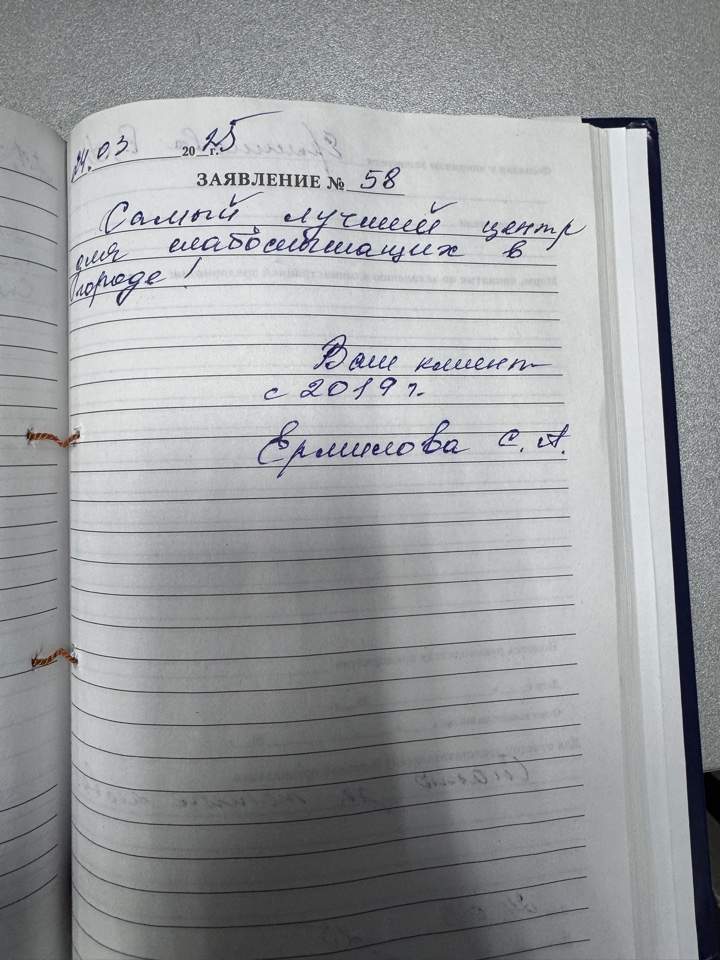 24.03 2025 г.
ЗАЯВЛЕНИЕ № 58
Самый лучший центр
для слабослышащих в
городе!
Ваш клиент
с 2019 г.
Ермилова С. А.